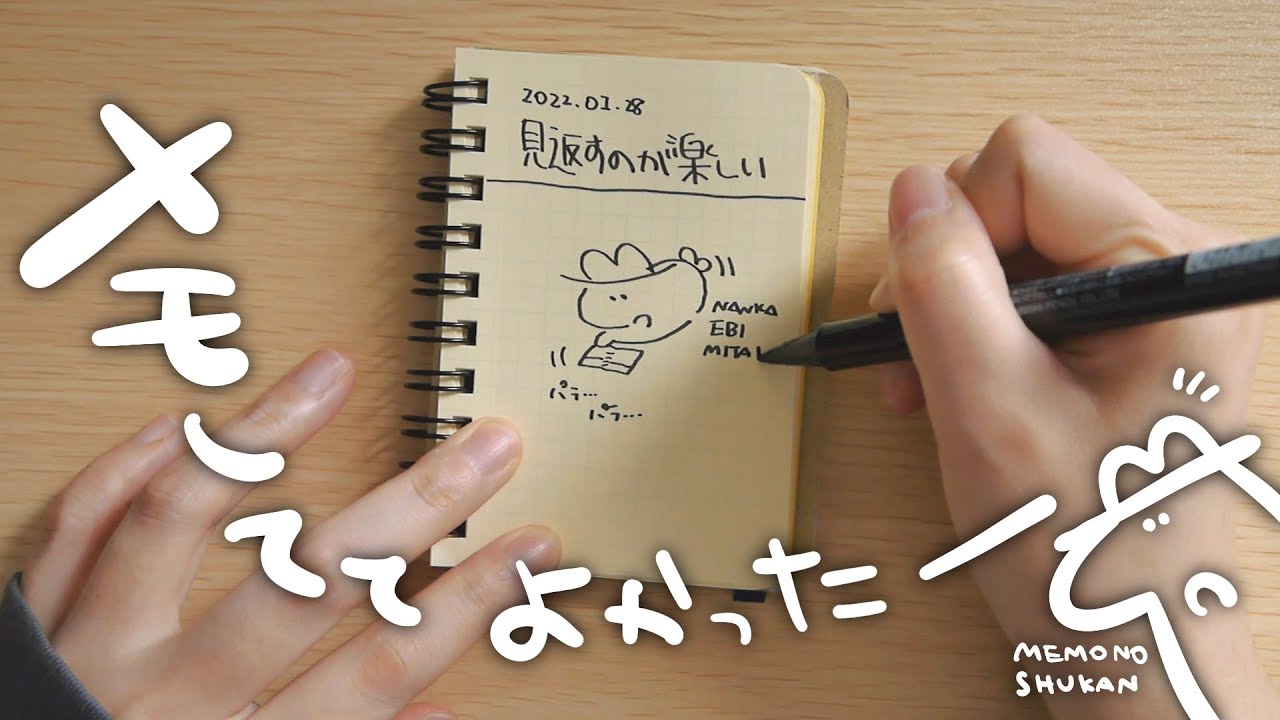 メモしててよかったー
2022.01.28
見返すのが楽しい
NANKA
EBI
MITAI
パラ…
パラ…
MEMONO
SHUKAN